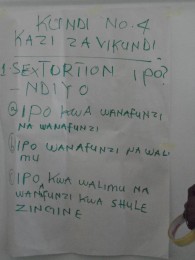 KUNDI NO.4
KAZI ZA VIKUNDI
1. SEXTORTION IPO?
- NDIYO
(a) IPO KWA WANAFUNZI
NA WANAFUNZI
(b) IPO WANAFUNZI NA WALI
MU
(c) IPO KWA WALIMU NA
WANAFUNZI KWA SHULE
ZINGINE